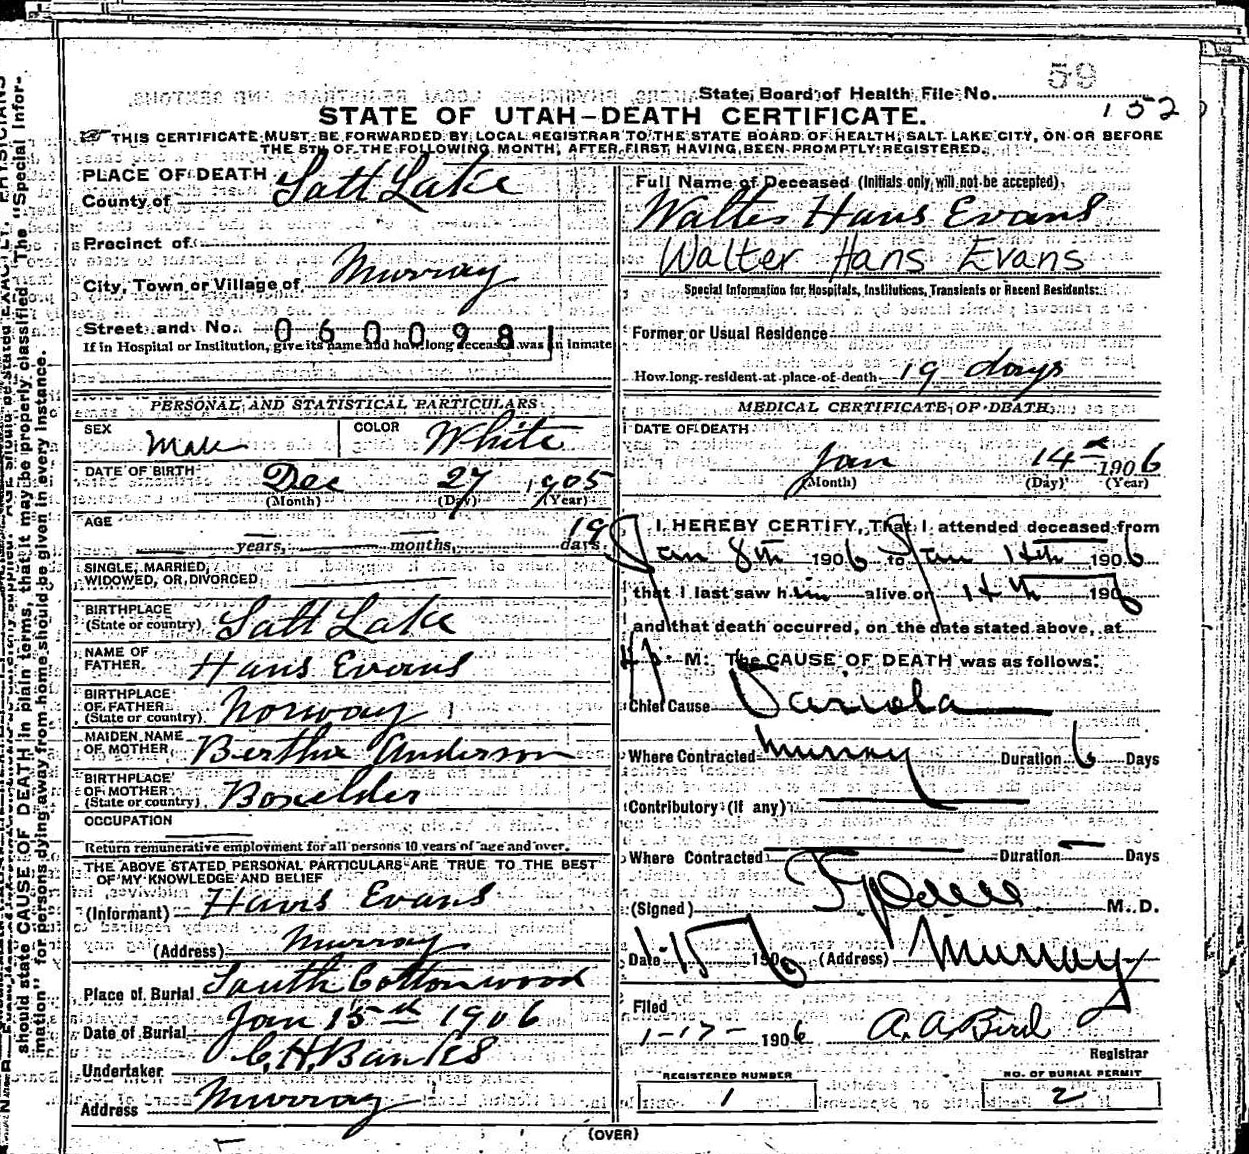 59
State Board of Health File No.
152
STATE OF UTAH—DEATH CERTIFICATE.
THIS CERTIFICATE MUST BE FORWARDED BY LOCAL REGISTRAR TO THE STATE BOARD OF HEALTH, SALT LAKE CITY, ON OR BEFORE
THE 5TH OF THE FOLLOWING MONTH, AFTER FIRST HAVING BEEN PROMPTLY REGISTERED.
PLACE OF DEATH
County of Salt Lake
Precinct of
City, Town or Village of Murray
Street and No. 0600981
If in Hospital or Institution, give its name and how long deceased was an inmate
PERSONAL AND STATISTICAL PARTICULARS
SEX Male COLOR White
DATE OF BIRTH Dec 27 1905
(Month) (Day) (Year)
AGE 19
years, months, days
SINGLE, MARRIED,
WIDOWED, OR DIVORCED
BIRTHPLACE
(State or country) Salt Lake
NAME OF
FATHER Hans Evans
BIRTHPLACE
OF FATHER
(State or country) Norway
MAIDEN NAME
OF MOTHER Bertha Anderson
BIRTHPLACE
OF MOTHER
(State or country) Boxelder
OCCUPATION
Return remunerative employment for all persons 10 years of age and over.
THE ABOVE STATED PERSONAL PARTICULARS ARE TRUE TO THE BEST
OF MY KNOWLEDGE AND BELIEF
(Informant) Hans Evans
(Address) Murray
Place of Burial South Cottonwood
Date of Burial Jan 15th 1906
Undertaker C. H. Banks
Address Murray
Full Name of Deceased (Initials only will not be accepted)
Walter Hans Evans
Walter Hans Evans
Special Information for Hospitals, Institutions, Transients or Recent Residents:
Former or Usual Residence
How long resident at place of death 19 days
MEDICAL CERTIFICATE OF DEATH
DATE OF DEATH
Jan 14th 1906
(Month) (Day) (Year)
I HEREBY CERTIFY, That I attended deceased from
Jan 8th 1906 to Jan 14th 1906
that I last saw him alive on 14th 1906
and that death occurred, on the date stated above, at
4 P. M. The CAUSE OF DEATH was as follows:
Chief Cause Variola
Where Contracted Murray Duration 6 Days
Contributory (if any)
Where Contracted Duration Days
(Signed) M. D.
Date 1-15 1906 (Address) Murray
Filed
1-17- 1906 A. A. Bird
Registrar
REGISTERED NUMBER
1
NO. OF BURIAL PERMIT
2
(OVER)
should state CAUSE OF DEATH in plain terms, that it may be properly classified. The "Special Infor-
mation" for persons dying away from home should be given in every instance.